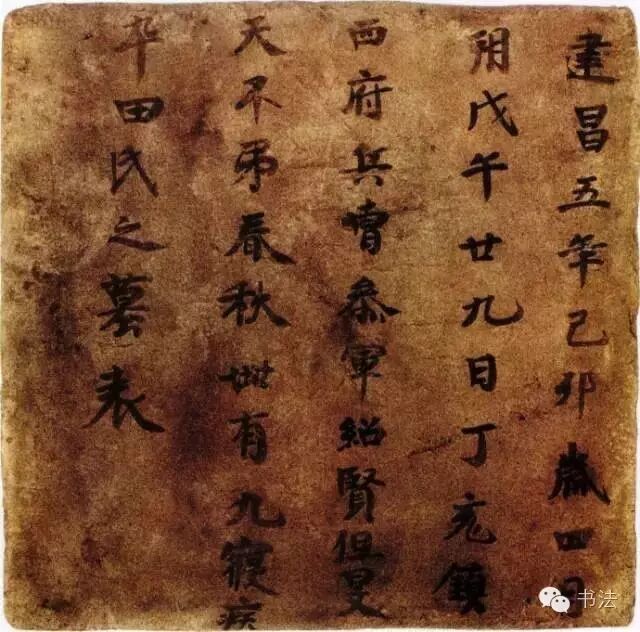 建昌五年己卯歲四月
朔戊午廿九日丁亥鎮
西府兵曹叅軍紹賢但旻
天不弔春秋卌有九寢疾
卒田氏之墓表
书法